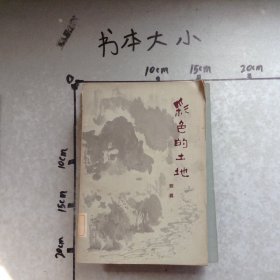 书本大小
10cm 15cm 20cm
0
彩色的土地
10cm
15cm
20cm